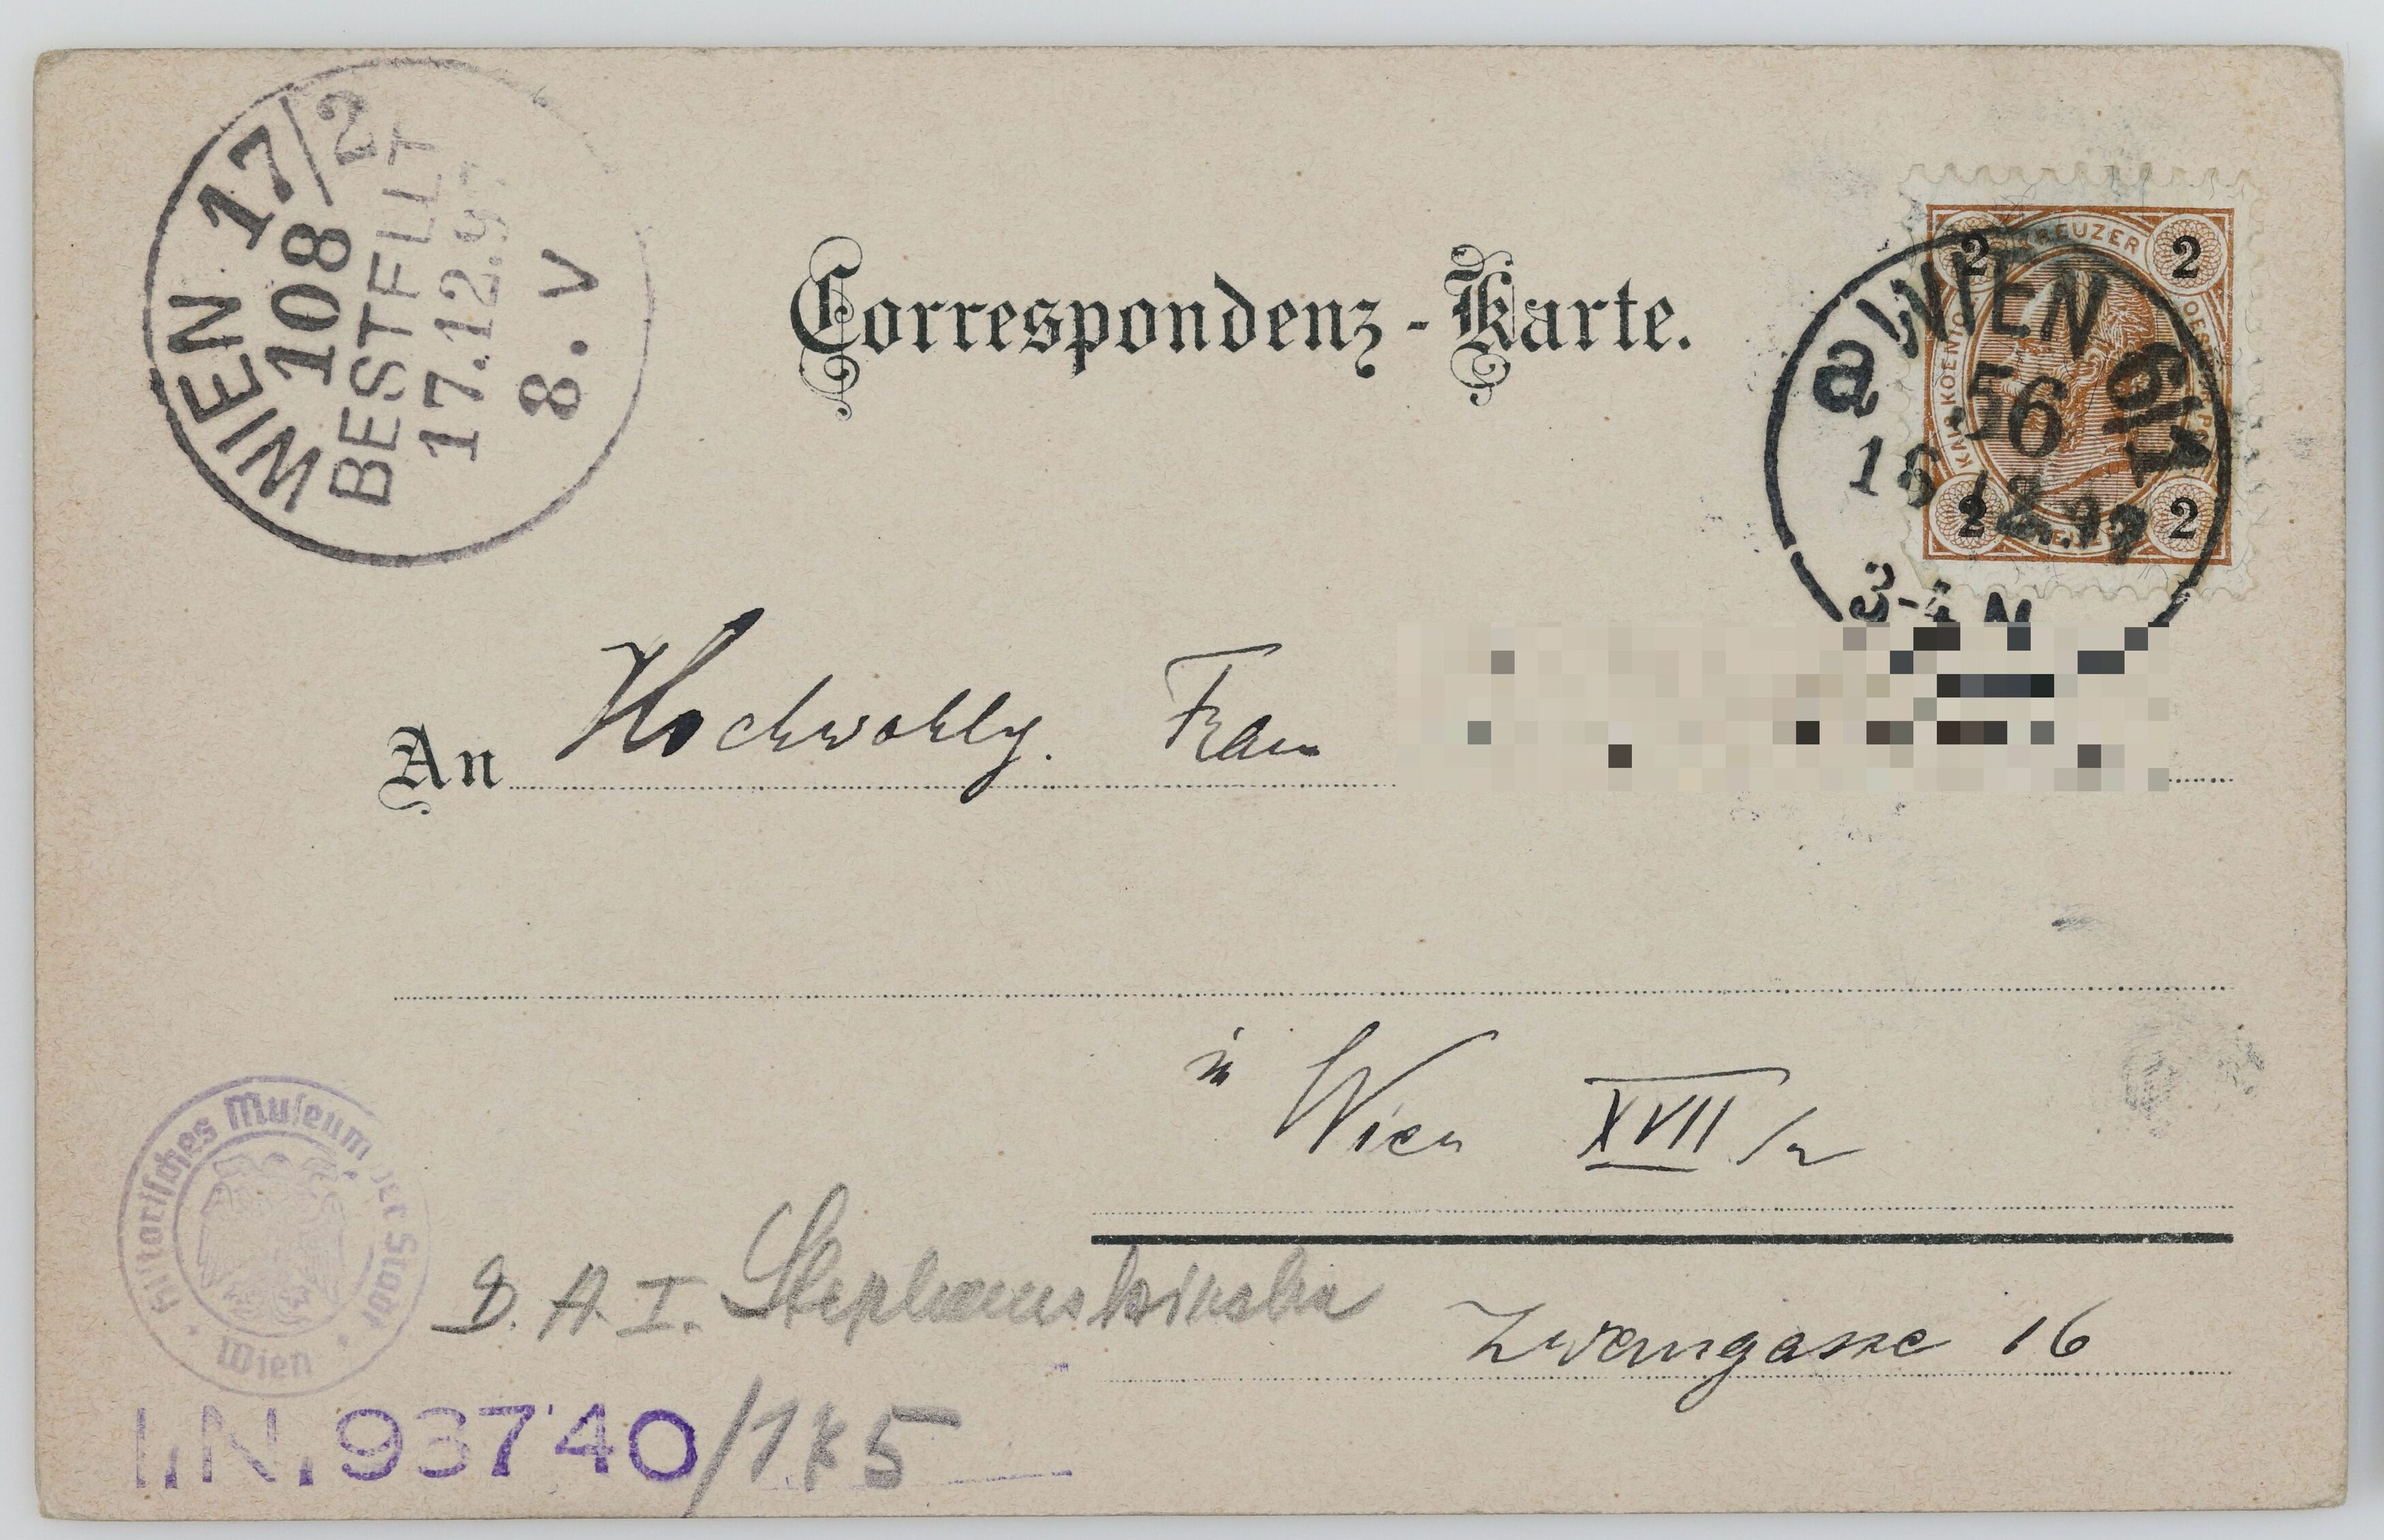 WIEN 17/2
WIEN
108
BESTELLT
17.12.9
8. V
Correspondenz-Karte.
2 KREUZER 2
a WIEN 9/1
56
16 12.97
2 2
3-4 N
An Hochwohlg. Frau
in Wien XVII/2
Historisches Museum der Stadt
Wien
D. A. I.
Zwerngasse 16
I.N. 93740/175